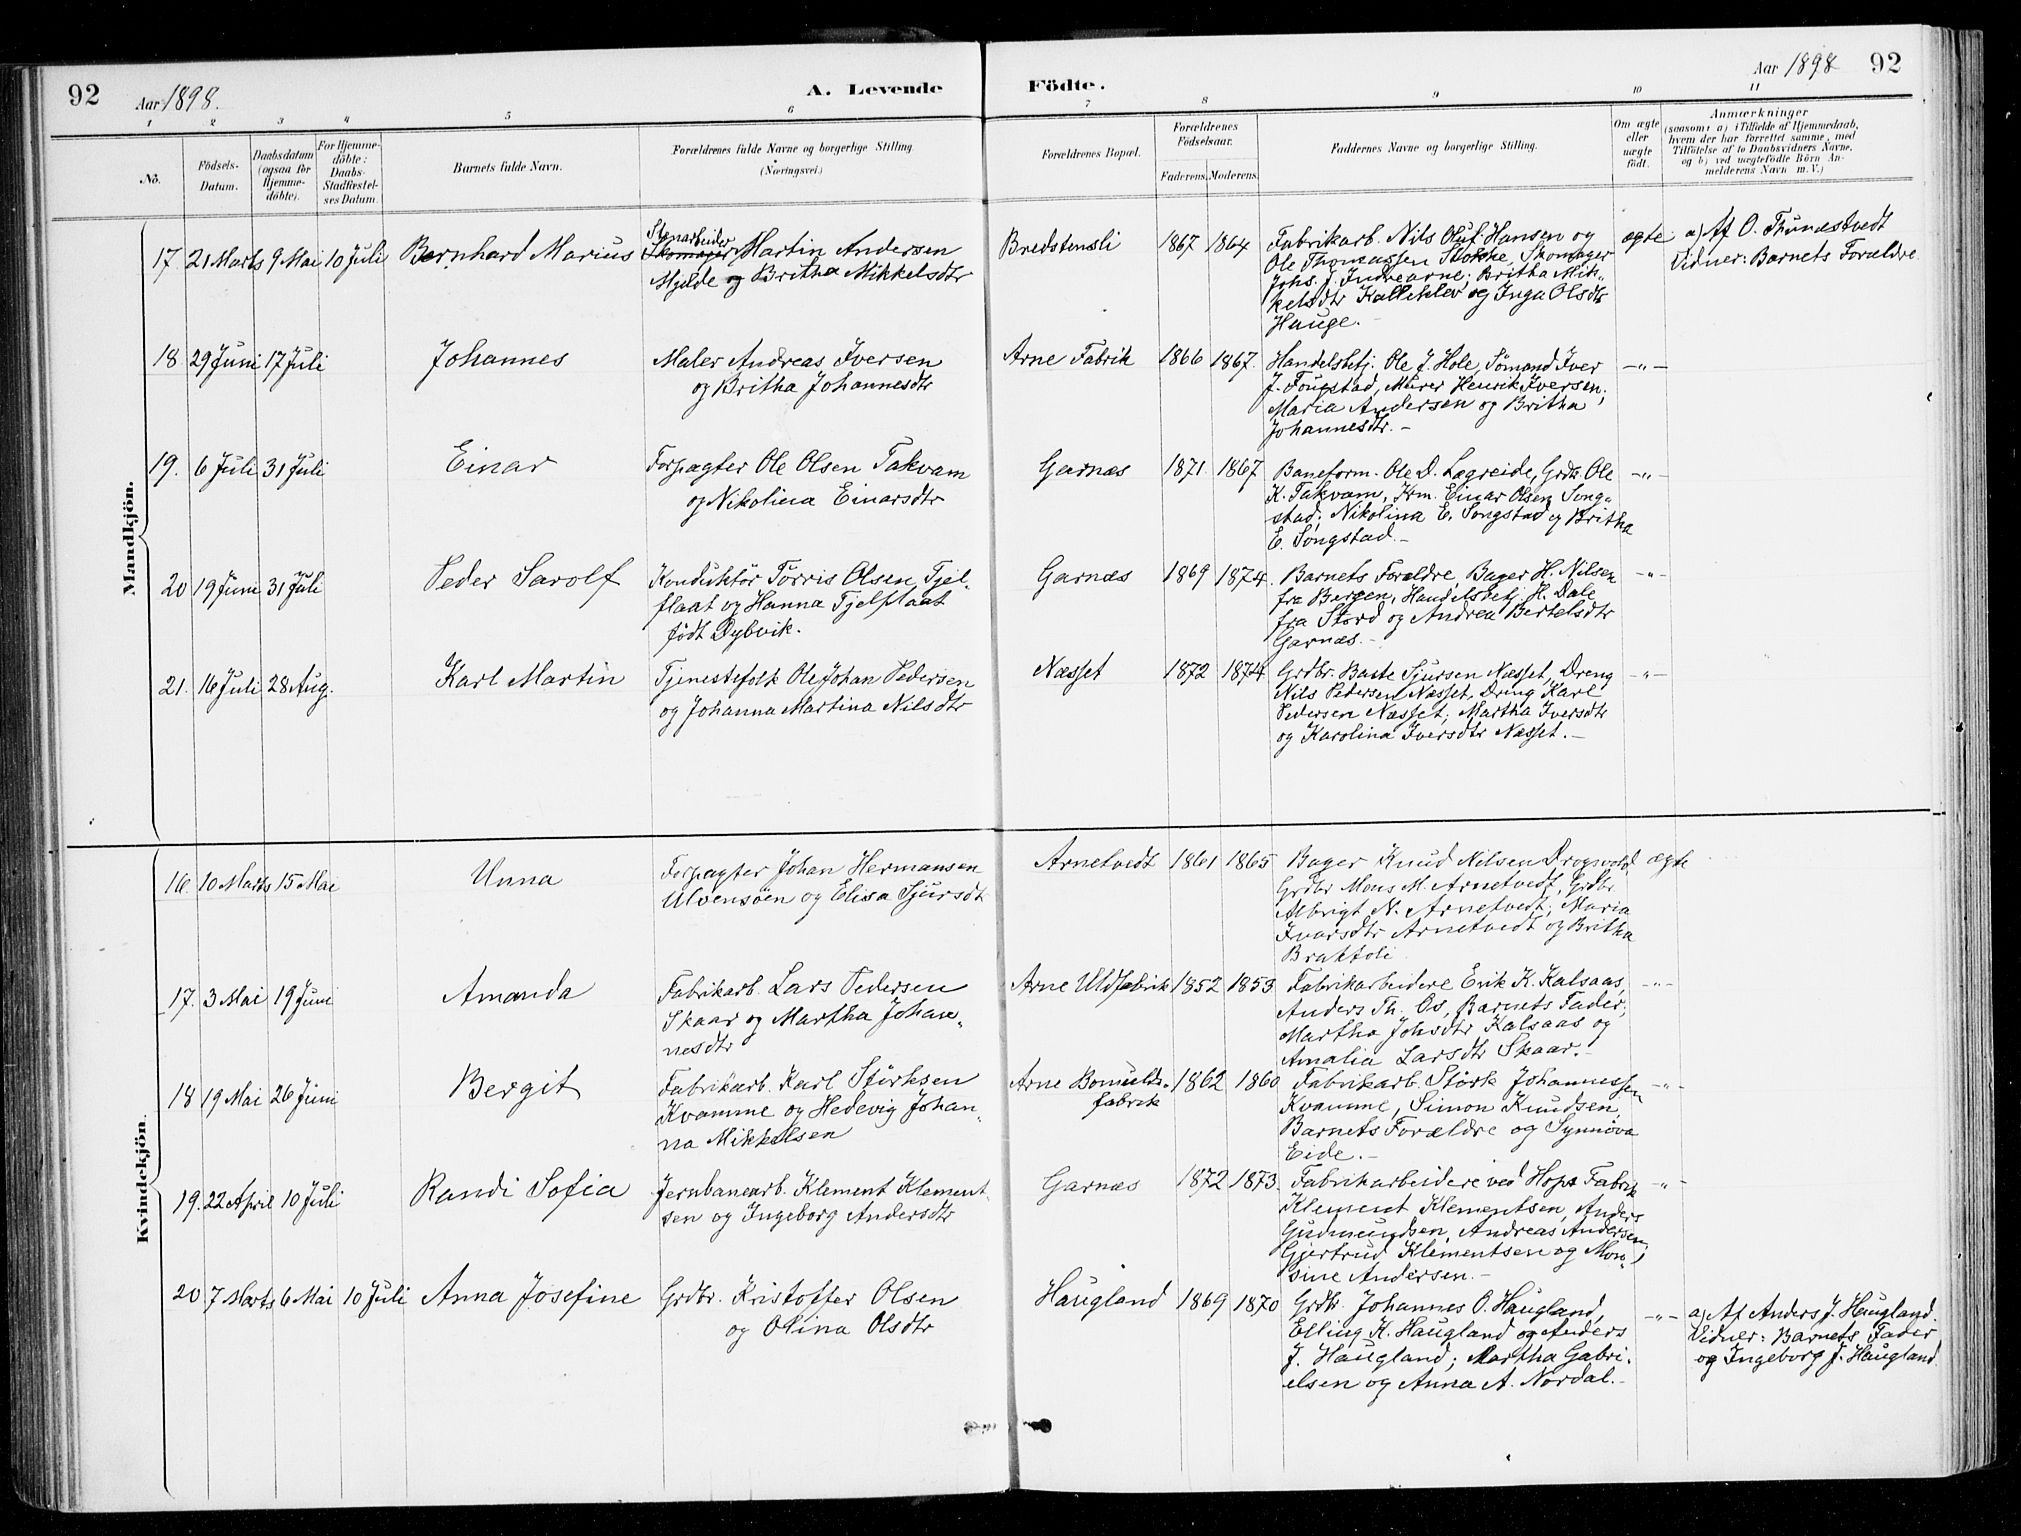 92 Aar 1898. A. Levende Födte. Aar 1898 92
1 2 3 4 5 6 7 8 9 10 11
No.
Födsels-
Datum.
Daabsdatum
(ogsaa for
Hjemme-
döbte).
For Hjemme-
döbte:
Daabs-
Stadfæstel-
ses Datum.
Barnets fulde Navn.
Forældrenes fulde Navne og borgerlige Stilling.
(Næringsvei.)
Forældrenes Bopæl.
Forældrenes
Födselsaar.
Faderens. Moderens.
Faddernes Navne og borgerlige Stilling.
Om ægte
eller
uægte
födt.
Anmærkninger
(saasom: a) i Tilfælde af Hjemmedaab,
hvem der har forrettet samme, med
Tilföielse af to Daabsvidners Navne,
og b) ved uægtefödte Börn An-
melderens Navn m. V.)
Mandkjön.
17. 21 Marts 9 Mai 10 Juli Bernhard Marius
Stenarbeider
Skomager Martin Andersen
Mjelde og Britha Mikkelsdtr
Bredstensli 1867 1864
Fabrikarb. Nils Oluf Hansen og
Ole Thomassen Stokke, Skomager
Johs. J. Indrearne; Britha Mik-
kelsdtr Kalleklev og Inga Olsdtr
Hauge.-
ægte
a) Af O. Thunestvedt
Vidner: Barnets Forældre
18. 29 Juni 17 Juli Johannes
Maler Andreas Iversen
og Britha Johannesdtr
Arne Fabrik 1866 1867.
Handelsbetj. Ole J. Hole, Sömand Iver
J. Fougstad, Murer Henrik Iversen;
Maria Andersen og Britha
Johannesdtr.-
-"-
19. 6 Juli 31 Juli Einar
Forpagter Ole Olsen Takvam
og Nikolina Einarsdtr
Garnæs 1871. 1867
Baneform. Ole D. Lægreide, Grdbr. Ole
K. Takvam, Krm. Einar Olsen Song-
stad; Nikolina E. Songstad og Britha
E. Songstad.-
-"-
20 19 Juni 31 Juli Peder Sarolf
Konduktör Torris Olsen Tjel-
flaat og Hanna Tjelflaat
födt Dybvik.
Garnæs 1869 1874.
Barnets Forældre, Bager H. Nilsen
fra Bergen, Handelsbetj. H. Dale
fra Stord og Andrea Bertelsdtr
Garnæs.-
-"-
21. 16 Juli 28 Aug. Karl Martin
Tjenestefolk Ole Johan Pedersen
og Johanna Martina Nilsdtr
Næsset 1872 1874
Grdbr. Baste Sjursen Næsset, Dreng
Nils Pedersen Næsset, Dreng Karl
Pedersen Næsset; Martha Iversdtr
og Karolina Iversdtr Næsset.-
-"-
Kvindekjön.
16. 10 Marts 15 Mai Unna
Forpagter Johan Hermansen
Ulvensöen og Elisa Sjursdtr
Arnetvedt 1861 1865
Bager Knud Nilsen Drogvold,
Grdbr Mons M. Arnetvedt, Grdbr.
Albrigt N. Arnetvedt; Maria
Ivarsdtr Arnetvedt og Britha
Brattoli
ægte
17. 3 Mai 19 Juni Amanda
Fabrikarb. Lars Pedersen
Skaar og Martha Johan-
nesdtr
Arne Uldfabrik 1852 1853
Fabrikarbeidere Erik K. Kalsaas,
Anders Th. Os, Barnets Fader;
Martha Johsdtr Kalsaas og
Amalia Larsdtr Skaar.-
-"-
18 19 Mai 26 Juni Bergit
Fabrikarb. Karl Störksen
Kvamme og Hedevig Johan-
na Mikkelsen
Arne Bomulds-
fabrik
1862 1860
Fabrikarb. Störk Johannessen
Kvamme, Simon Knudsen,
Barnets Forældre og Synnöva
Eide.-
-"-
19. 22 April 10 Juli Randi Sofia
Jernbanearb. Klement Klement-
sen og Ingeborg Andersdtr
Garnæs 1872 1873.
Fabrikarbeidere ved Hops Fabrik
Klement Klementsen, Anders
Gudmundsen, Andreas Andersen;
Gjertrud Klementsen og Mon-
sine Andersen.-
-"-
20 7 Marts 6 Mai 10 Juli Anna Josefine
Grdbr. Kristoffer Olsen
og Olina Olsdtr
Haugland 1869 1870
Grdbr. Johannes O. Haugland,
Elling K. Haugland og Anders
J. Haugland; Martha Gabri-
elsen og Anna A. Nordal.-
-"-
a) Af Anders J. Haugland.
Vidner: Barnets Fader
og Ingeborg J. Haugland